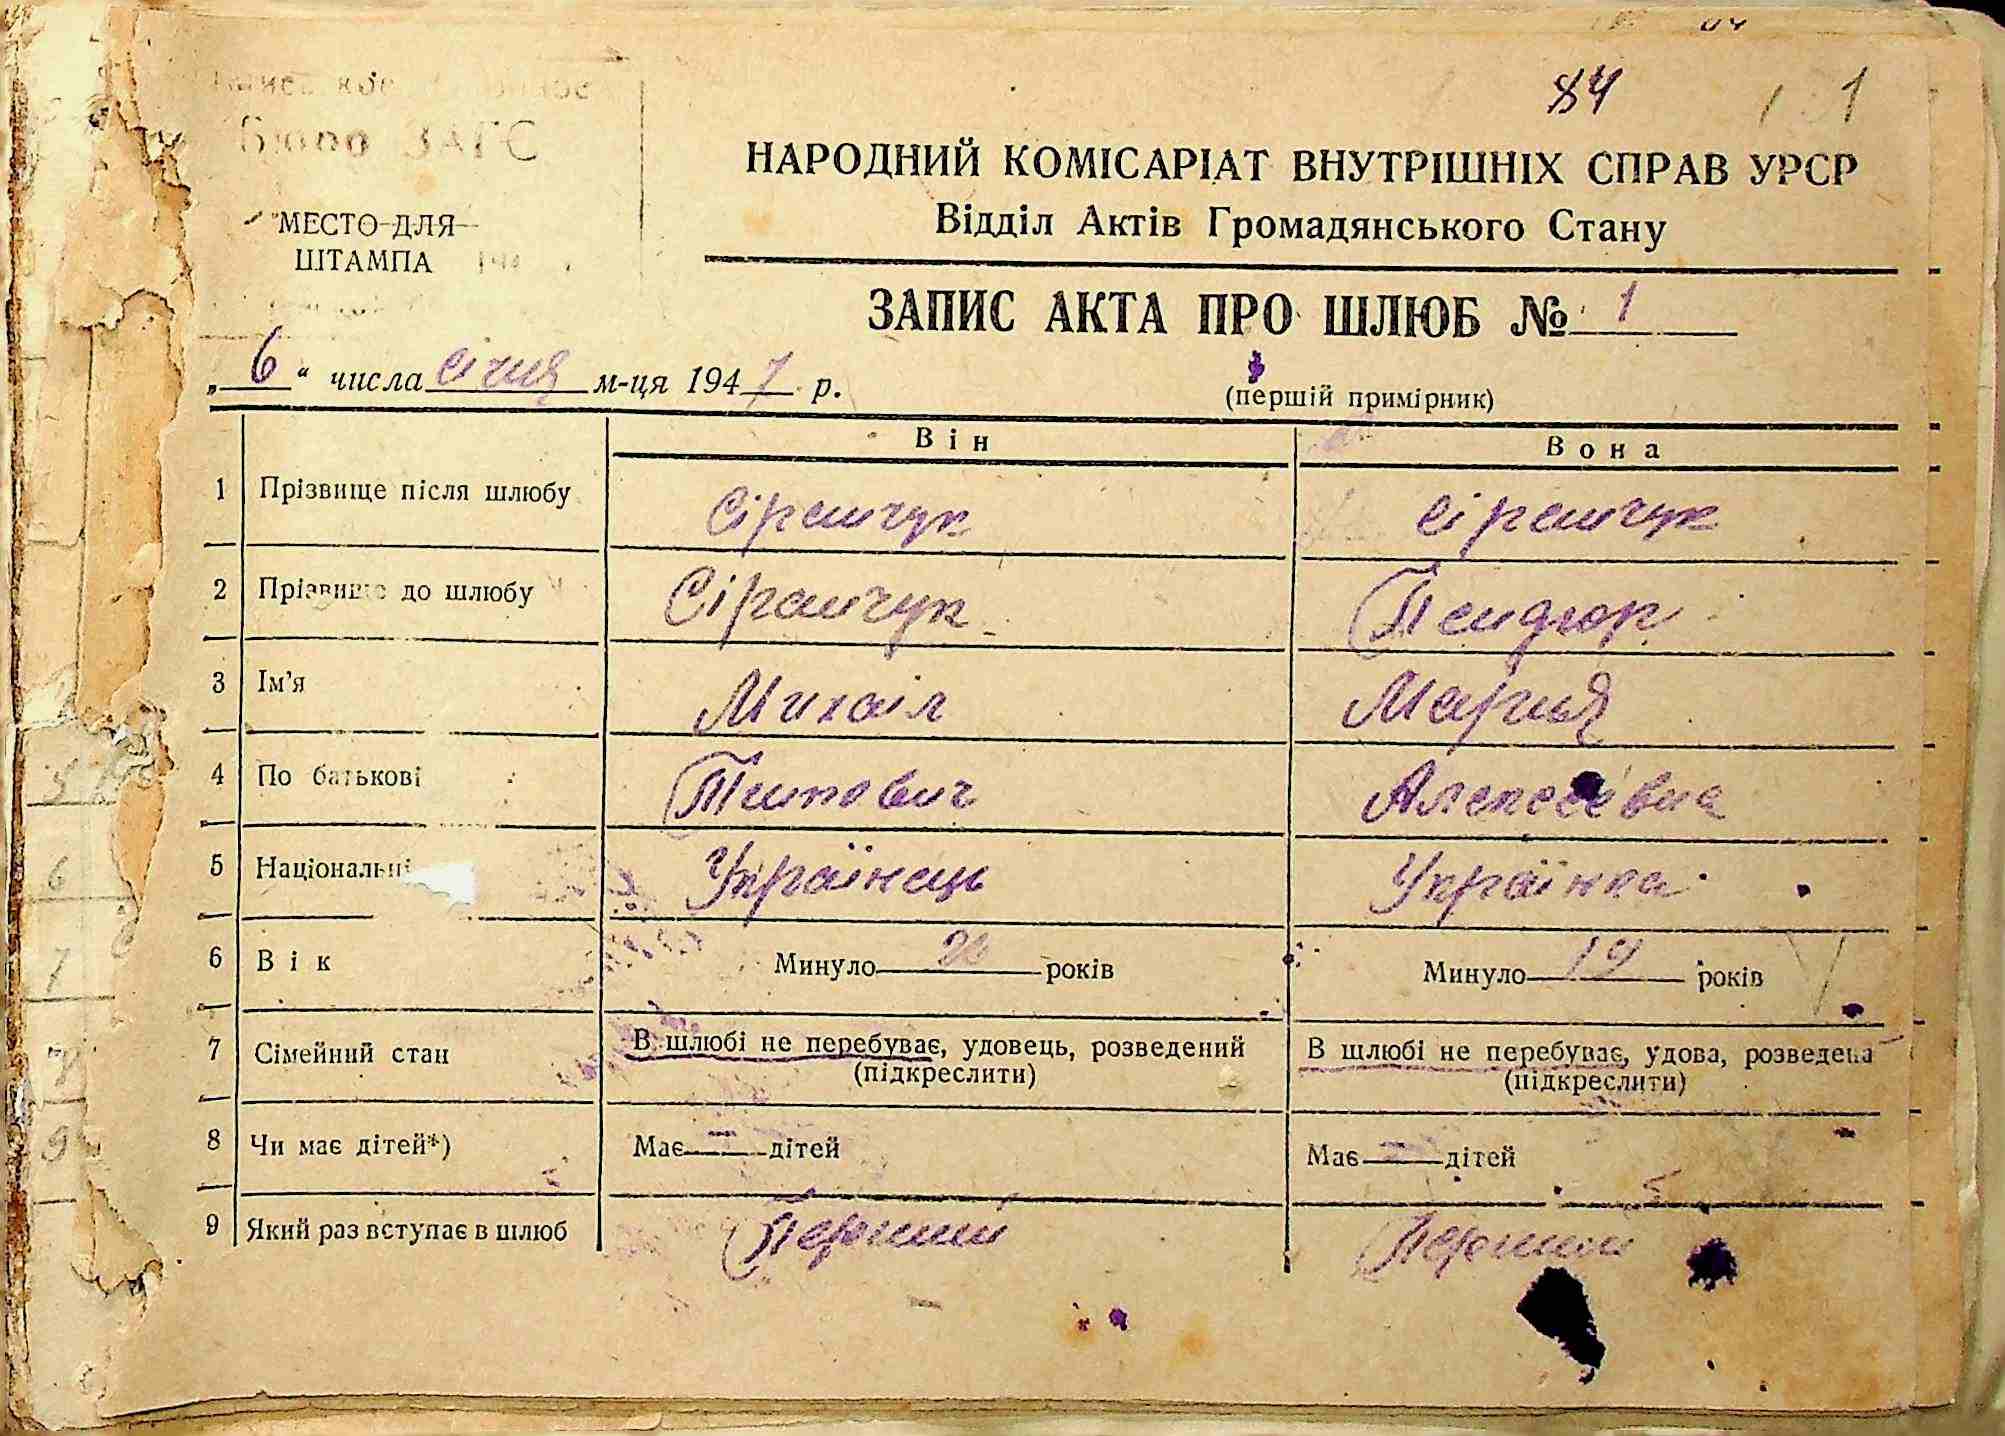 84 1
Бюро ЗАГС
НАРОДНИЙ КОМІСАРІАТ ВНУТРІШНІХ СПРАВ УРСР
Відділ Актів Громадянського Стану
МЕСТО ДЛЯ
ШТАМПА
ЗАПИС АКТА ПРО ШЛЮБ № 1
„6“ числа січня м-ця 1947 р.
(першій примірник)
Він Вона
1 Прізвище після шлюбу Сірамчук Сірамчук
2 Прізвище до шлюбу Сірамчук
3 Ім'я Михаіл Мария
4 По батькові Алексеевна
5 Національні Українець Українка
6 Вік Минуло років Минуло 19 років
7 Сімейний стан В шлюбі не перебуває, удовець, розведений В шлюбі не перебуває, удова, розведена
(підкреслити) (підкреслити)
8 Чи має дітей*) Має — дітей Має — дітей
9 Який раз вступає в шлюб Перший Перший